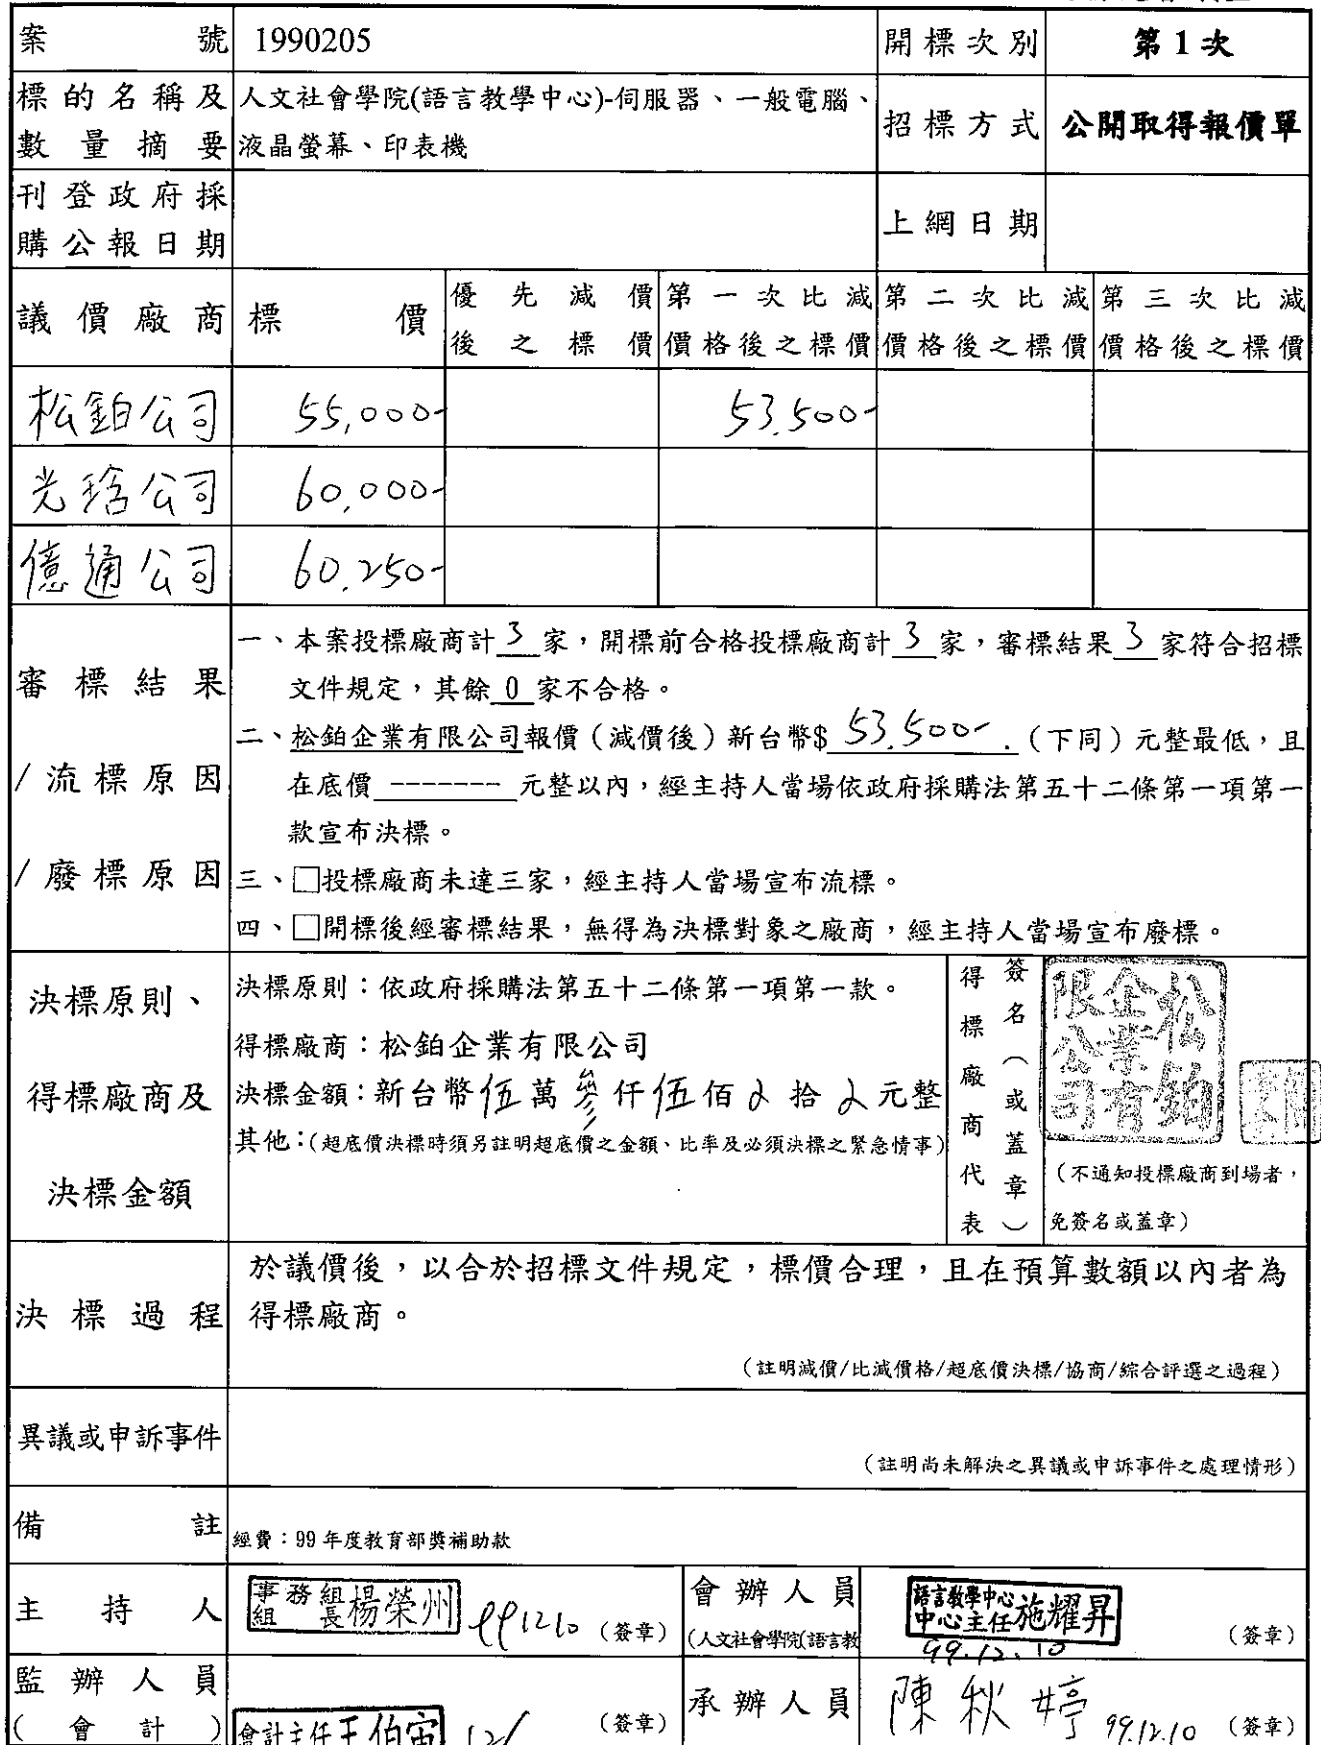 案號 1990205 開標次別 第1次
標的名稱及 人文社會學院(語言教學中心)-伺服器、一般電腦、 招標方式 公開取得報價單
數量摘要 液晶螢幕、印表機
刊登政府採 上網日期
購公報日期
議價廠商 標價 優先減價 第一次比減 第二次比減 第三次比減
後之標價 價格後之標價 價格後之標價 價格後之標價
松鉑公司 55,000- 53,500-
光琀公司 60,000-
億通公司 60,250-
審標結果
/流標原因
/廢標原因
一、本案投標廠商計 3 家，開標前合格投標廠商計 3 家，審標結果 3 家符合招標
文件規定，其餘 0 家不合格。
二、松鉑企業有限公司報價（減價後）新台幣$ 53,500- .（下同）元整最低，且
在底價 ------- 元整以內，經主持人當場依政府採購法第五十二條第一項第一
款宣布決標。
三、□投標廠商未達三家，經主持人當場宣布流標。
四、□開標後經審標結果，無得為決標對象之廠商，經主持人當場宣布廢標。
決標原則、
得標廠商及
決標金額
決標原則：依政府採購法第五十二條第一項第一款。
得標廠商：松鉑企業有限公司
決標金額：新台幣伍萬參仟伍佰0拾0元整
其他：(超底價決標時須另註明超底價之金額、比率及必須決標之緊急情事)
得標廠商代表
簽名（或蓋章）
松鉑企業有限公司
（不通知投標廠商到場者，
免簽名或蓋章）
決標過程
於議價後，以合於招標文件規定，標價合理，且在預算數額以內者為
得標廠商。
（註明減價/比減價格/超底價決標/協商/綜合評選之過程）
異議或申訴事件
（註明尚未解決之異議或申訴事件之處理情形）
備註 經費：99年度教育部獎補助款
主持人 事務組組長楊榮州 991210 （簽章）
會辦人員 語言教學中心中心主任施耀昇
(人文社會學院(語言教 99.12.10 （簽章）
監辦人員
(會計) 會計主任王伯宙 12/ （簽章）
承辦人員 陳秋婷 99.12.10 （簽章）